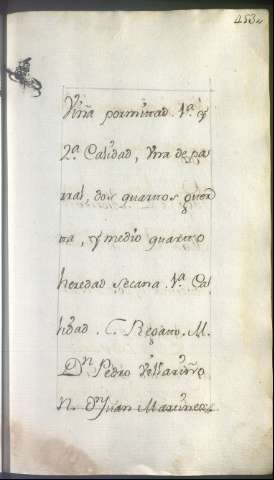 453
Viña por mitad. 1.ª y
2.ª Calidad, Una de pa
rral, dos quartos huer
ta, y medio quarto
heredad secana. 1.ª Ca
lidad. C. Regato. M.
D.n Pedro
N. D.n Juan Martinez.